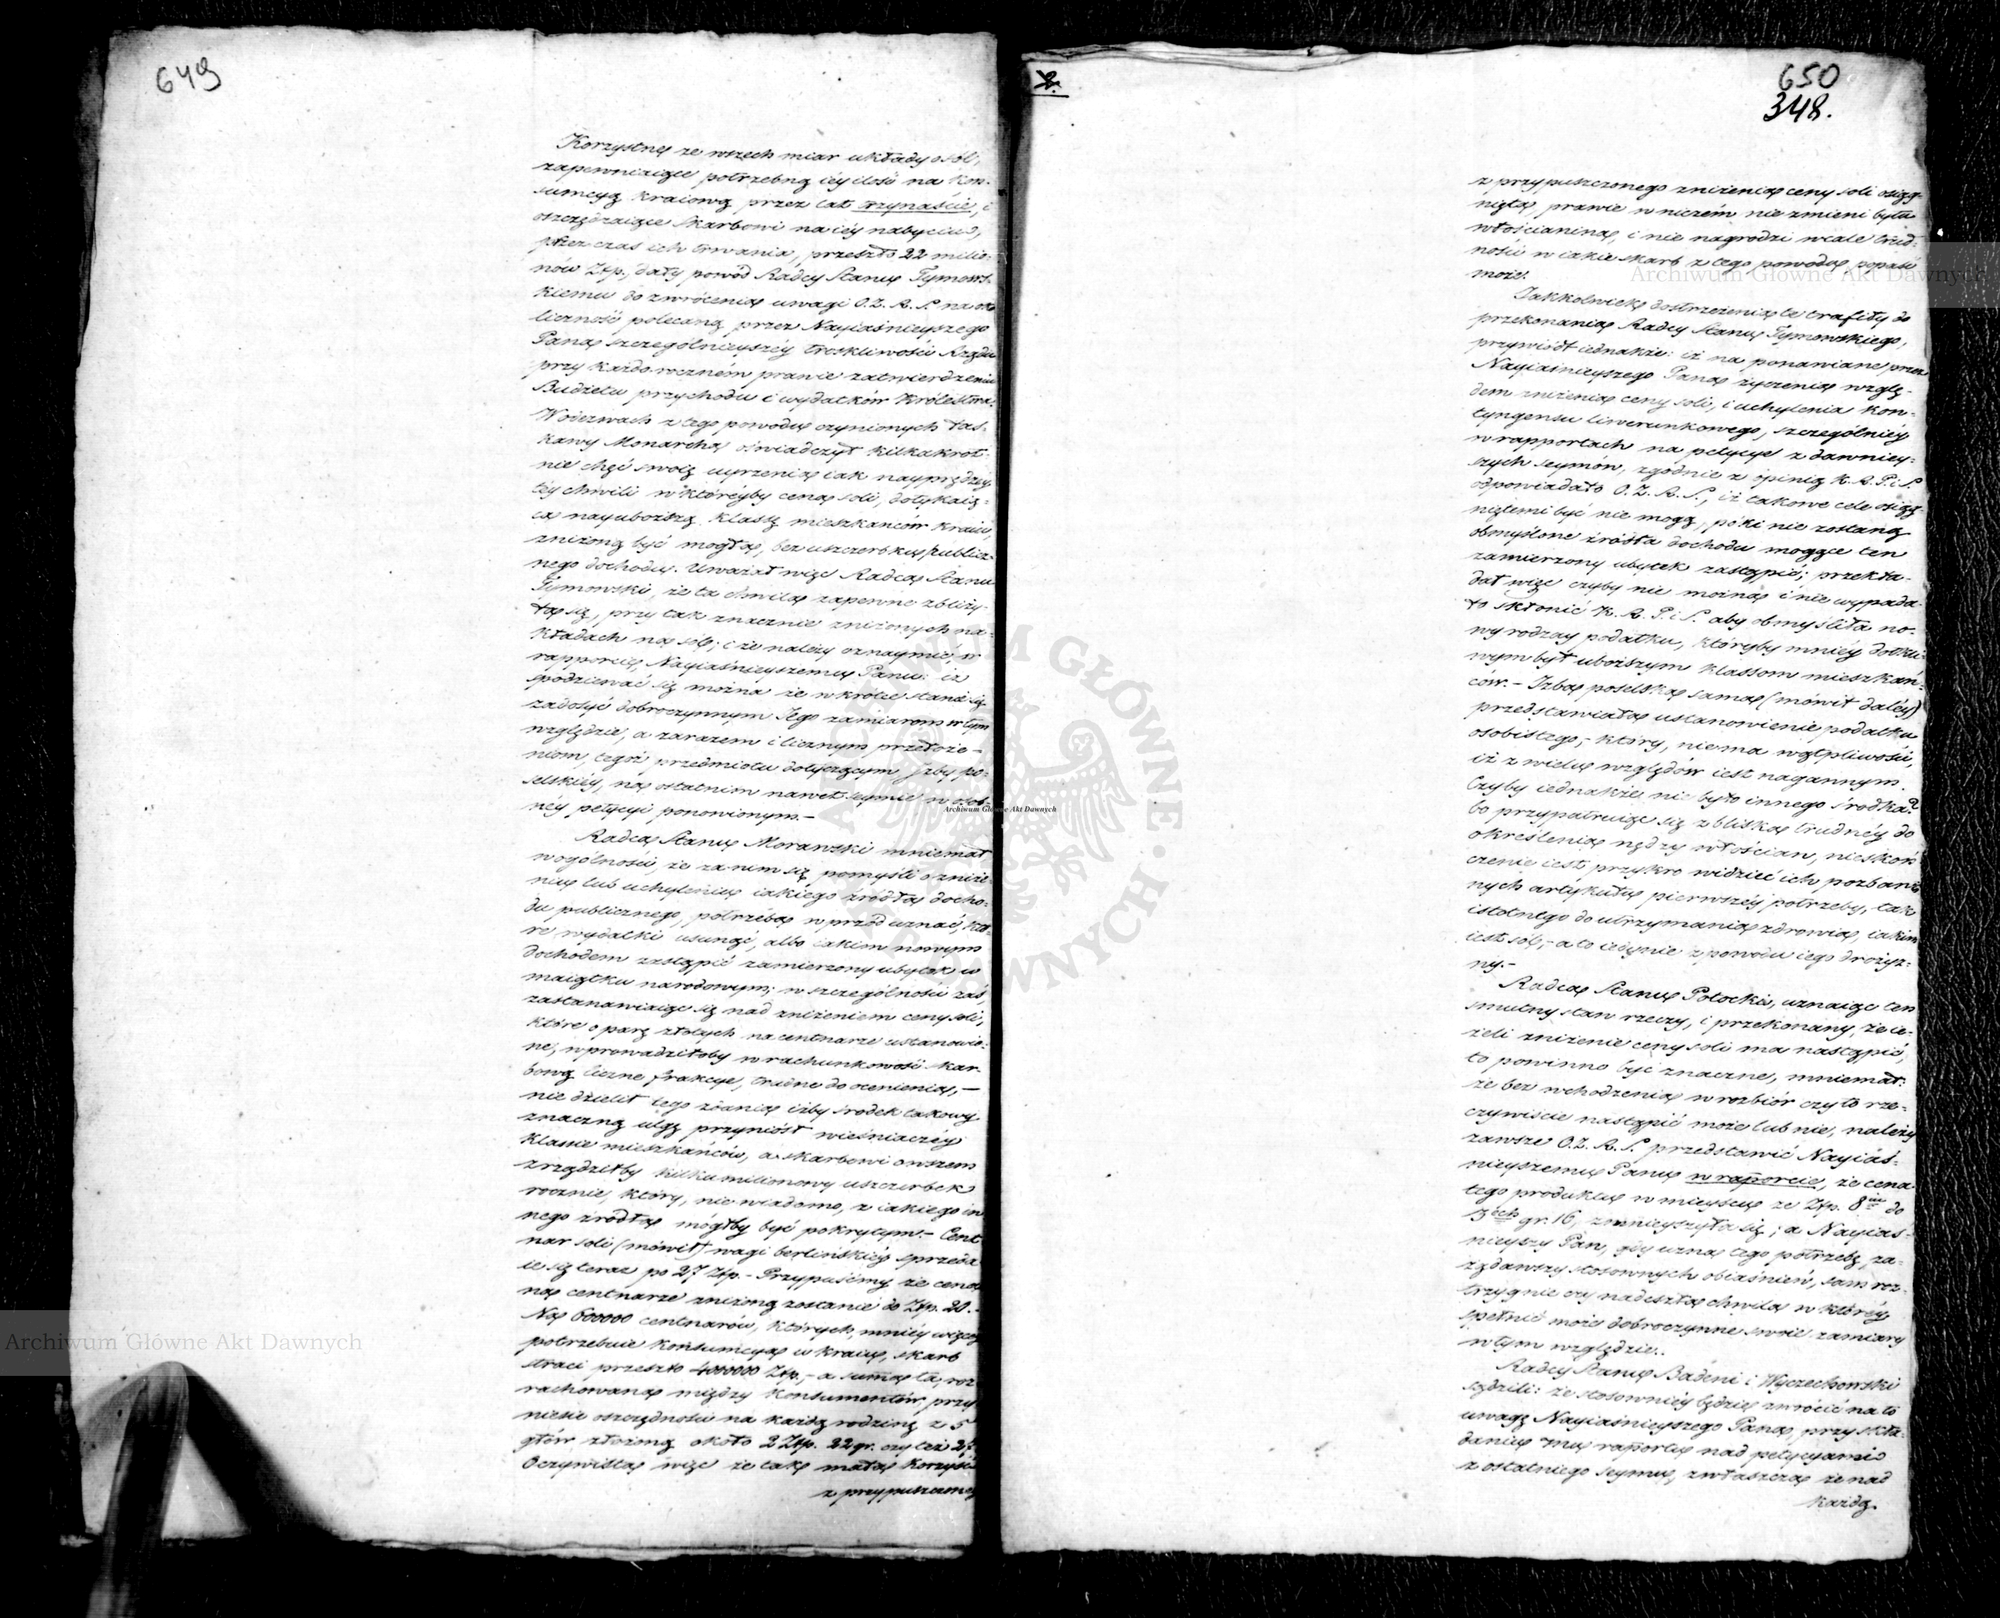 649
Korzystne ze wszech miar układy o sól,
zapewniaiące potrzebną iéy ilość na kon-
sumcyą kraiową przez lat trzynaście, i
oszczędzaiące Skarbowi na iéy nabyciu,
przez czas ich trwania, przeszło 22 milio-
nów Złp., dały powód Radcy Stanu Tymows-
kiemu do zwrócenia uwagi O. Z. R. S. na oko-
liczność polecaną przez Nayiaśnieyszego
Pana szczególnieyszéy troskliwości Rządu
przy każdorocznem prawie zatwierdzeniu
Budżetu przychodu i wydatków Królestwa.
W odezwach z tego powodu czynionych łas-
kawy Monarcha oświadczył kilkakrot-
nie chęć swoią uyrzenia iak nayprędzéy
téy chwili w któréyby cena soli, dotykaią-
ca nayuboższą klassę mieszkańców kraiu,
zniżoną być mogła, bez uszczerbku publicz-
nego dochodu. Uważał więc Radca Stanu
Tymowski, że ta chwila zapewne zbliży-
ła się, przy tak znacznie zniżonych na-
kładach na sól; i że należy oznaymić, w
rapporcie, Nayiaśnieyszemu Panu: iż
spodziewać się można że wkrótce stanie się
zadosyć dobroczynnym Jego zamiarom w tym
względzie, a zarazem i licznym przełoże-
niom, tegoż przedmiotu dotyczącym Izby po-
selskiéy, na ostatnim nawet seymie w osob-
néy petycyi ponowionym.-
Radca Stanu Morawski mniemał
w ogólności, że zanim się pomyśli o zniże-
niu lub uchyleniu iakiego źródła docho-
du publicznego, potrzeba wprzód uznać, któ-
re wydatki usunąć, albo iakim nowym
dochodem zastąpić zamierzony ubytek w
maiątku narodowym; w szczególności zaś,
zastanawiaiąc się nad zniżeniem ceny soli,
które o parę złotych na centnarze ustanowio-
ne, wprowadziłoby w rachunkowość skar-
bową liczne frakcye, trudne do ocenienia,-
nie dzielił tego zdania iżby środek takowy
znaczną ulgę przyniósł wieśniaczéy
klassie mieszkańców, a skarbowi owszem
zrządziłby kilkumilionowy uszczerbek
rocznie, który, nie wiadomo, z iakiego in-
nego źródła mógłby być pokrytym.- Cent
nar soli (mówił) wagi berlińskiéy sprzeda-
ie się teraz po 27 Złp.- Przypuśćmy że cena
na centnarze zniżoną zostanie do Złp. 20.-
Na 600000 centnarów, których, mniéy więcéy
potrzebuie konsumcya w kraiu, skarb
straci przeszło 4000000 Złp.,- a summa ta, roz
rachowana między konsumentów przy
niesie oszczędności na każdą rodzinę z 5
głów złożoną około 2 Złp. 22 gr. czy też 27.
Oczywista więc że tak mała korzyść
z przypuszczonego
2.
650
348.
z przypuszczonego zniżenia ceny soli osiąg-
nięta prawie w niczém nie zmieni bytu
włościanina, i nie nagrodzi wcale trud-
ności w iakie skarb z tego powodu popaść
może.
Jakkolwiek dostrzeżenia te trafiły do
przekonania Radcy Stanu Tymowskiego,
przywiódł iednakże: iż na ponawiane przez
Nayiaśnieyszego Pana życzenia wzglę-
dem zniżenia ceny soli, i uchylenia kon-
tyngensu liwerunkowego, szczególniéy
w rapportach na petycye z dawniey-
szych seymów, zgodnie z opinią K. R. P. i S.
odpowiadało O. Z. R. S., iż takowe cele osiąg-
niętemi być nie mogą, póki nie zostaną
obmyślone źródła dochodu mogące ten
zamierzony ubytek zastąpić; przekła-
dał więc czyby nie można i nie wypada-
ło skłonić K. R. P. i S. aby obmyśliła no-
wy rodzay podatku, któryby mniéy dotkli-
wym był uboższym klassom mieszkań-
ców.- Izba poselska sama (mówił daléy)
przedstawiała ustanowienie podatku
osobistego,- który, niema wątpliwości,
iż z wielu względów iest nagannym.
Czyby iednakże nie było innego środka?
bo przypatruiąc się zbliska trudnéy do
określenia nędzy włościan, nieskoń-
czenie iest przykro widzieć ich pozbawio-
nych artykułu pierwszéy potrzeby, tak
istotnego do utrzymania zdrowia, iakim
iest sól,- a to iedynie z powodu iego drożyz-
ny.-
Radca Stanu Potocki, uznaiąc ten
smutny stan rzeczy, i przekonany, że ie-
żeli zniżenie ceny soli ma nastąpić,
to powinno być znaczne, mniemał:
że bez wchodzenia w rozbiór czy to rze-
czywiście nastąpić może lub nie, należy
zawsze O. Z. R. S. przedstawić Nayiaś-
nieyszemu Panu w raporcie, że cena
tego produktu w mieyscu ze Złp. 8iu do
3ech gr. 16, zmnieyszyła się; a Nayiaś-
nieyszy Pan, gdy uzna tego potrzebę, za-
żądawszy stosownych obiaśnień, sam roz-
trzygnie czy nadeszła chwila w któréy
spełnić może dobroczynne swoie zamiary
w tym względzie.-
Radcy Stanu Badeni i Wyczechowski
sądzili: że stosowniéy będzie zwrócić na to
uwagę Nayiaśnieyszego Pana, przy skła-
daniu Mu raportu nad petycyami
z ostatniego seymu, zwłaszcza że nad
każdą.
Archiwum Główne Akt Dawnych
Archiwum Główne Akt Dawnych
Archiwum Główne Akt Dawnych
ARCHIWUM GŁÓWNE AKT DAWNYCH